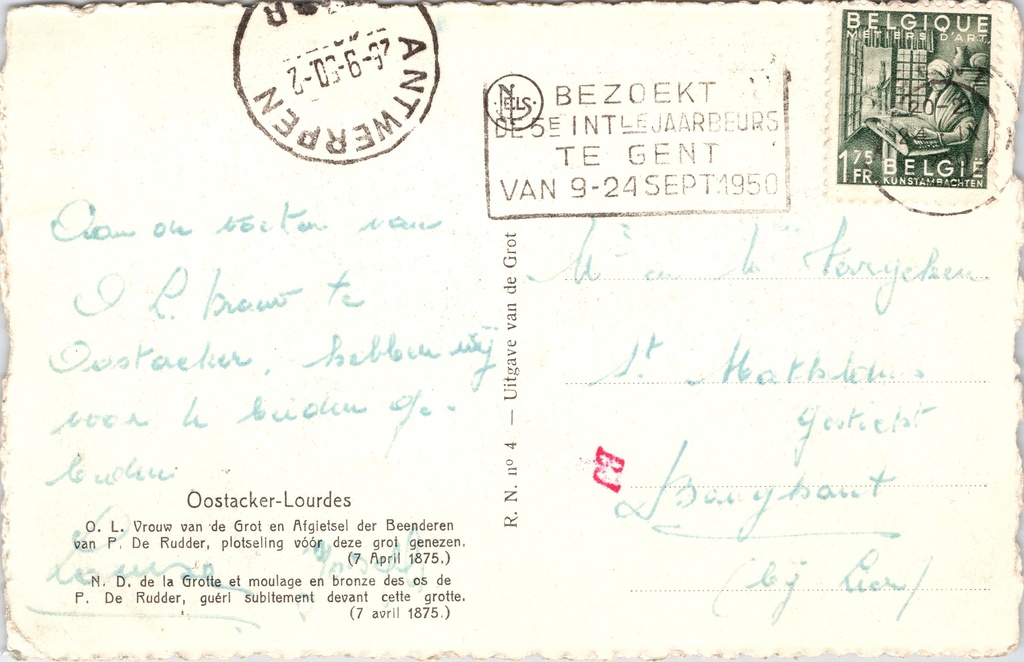 ANTWERPEN
26-9-50
NELS
BEZOEKT
DE 5E INTLE JAARBEURS
TE GENT
VAN 9-24 SEPT. 1950
BELGIQUE
METIERS D'ART
1 75 FR.
BELGIË
KUNSTAMBACHTEN
Aan de voeten van
O L. Vrouw te
Oostacker, hebben wij
voor U beiden ge-
beden
Louisa
Oostacker-Lourdes
O. L. Vrouw van de Grot en Afgietsel der Beenderen
van P. De Rudder, plotseling vóór deze grot genezen.
(7 April 1875.)
N. D. de la Grotte et moulage en bronze des os de
P. De Rudder, guéri subitement devant cette grotte.
(7 avril 1875.)
R. N. nº 4 — Uitgave van de Grot
Mr en
St. Mathildis
Gesticht
(bij Lier)